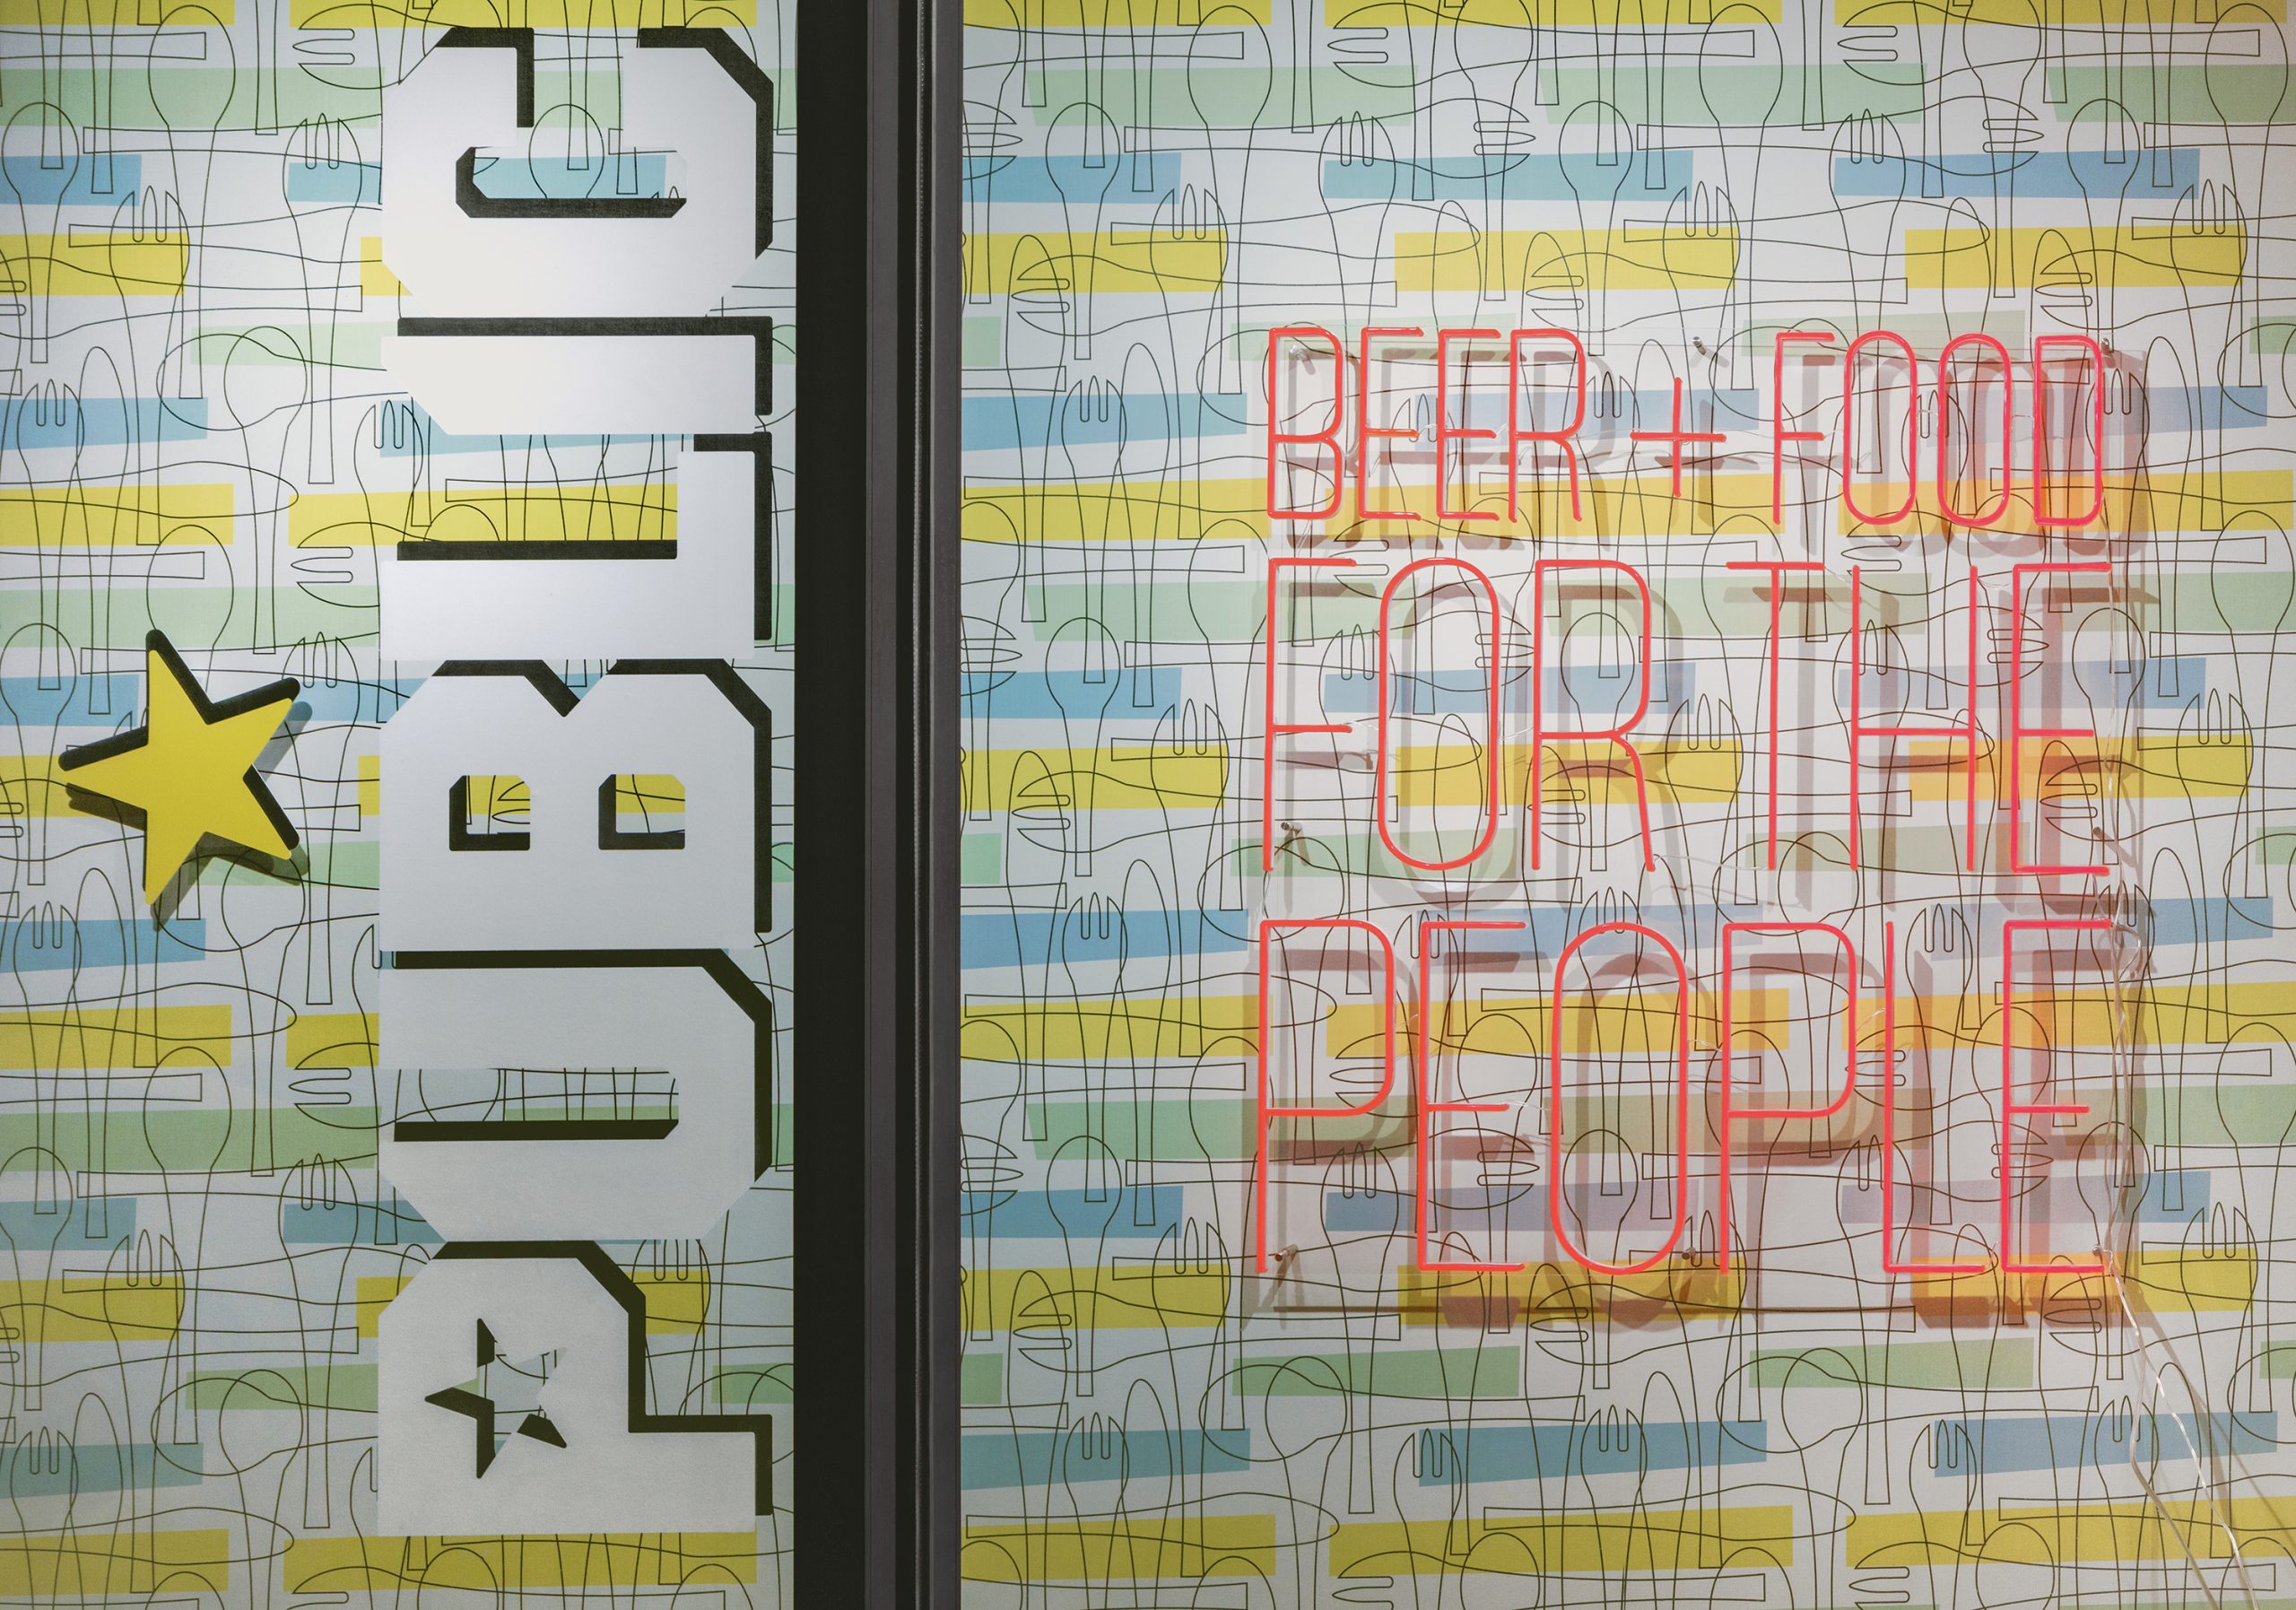 PUBLIC
BEER + FOOD
FOR THE
PEOPLE